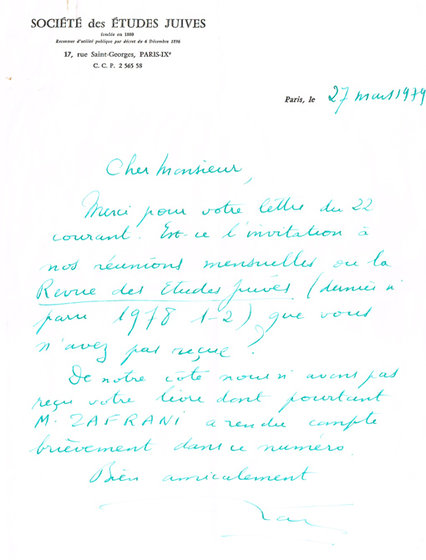 SOCIÉTÉ des ÉTUDES JUIVES
fondée en 1880
Reconnue d'utilité publique par décret du 6 Décembre 1896
17, rue Saint-Georges, PARIS-IXe
C. C. P. 2 565 58
Paris, le 27 mars 1979
Cher Monsieur,
Merci pour votre lettre du 22
courant. Est-ce l'invitation à
nos réunions mensuelles ou la
Revue des Etudes juives (dernier n°
paru 1978 1-2) que vous
n'avez pas reçue?
De notre côté nous n'avons pas
reçu votre livre dont pourtant
M. ZAFRANI a rendu compte
brièvement dans ce numéro.
Bien amicalement